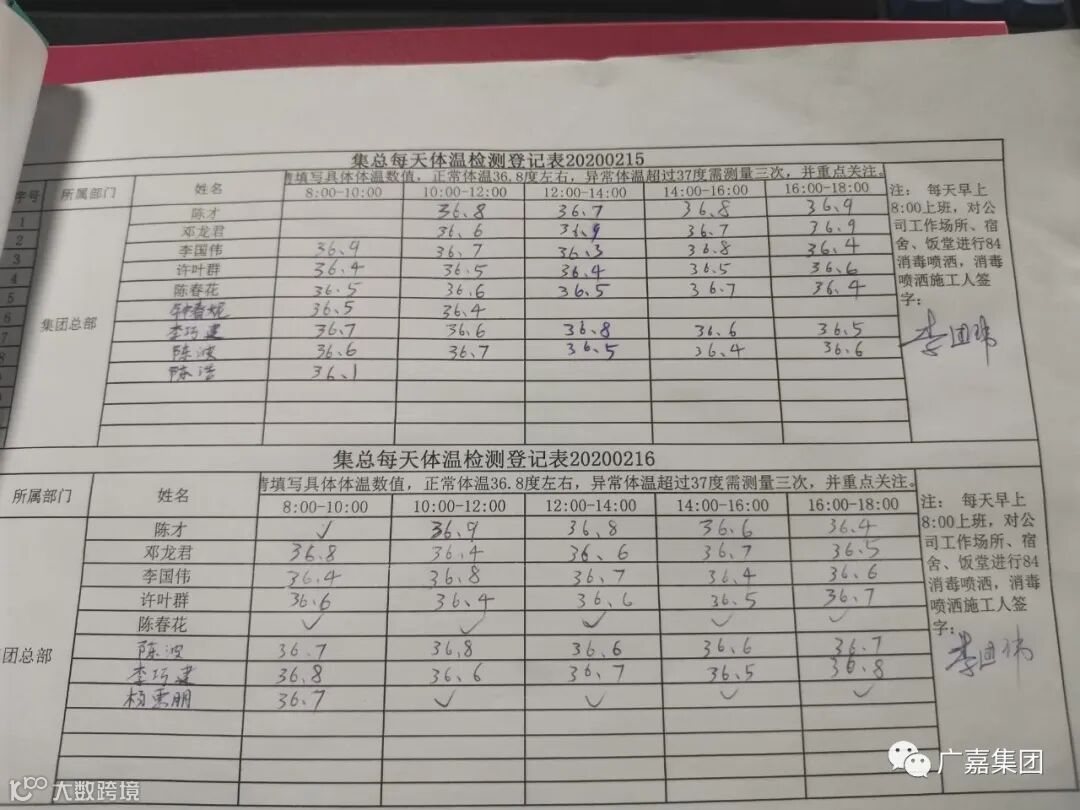 集总每天体温检测登记表20200215
序号 所属部门 姓名 请填写具体体温数值，正常体温36.8度左右，异常体温超过37度需测量三次，并重点关注。
8:00-10:00 10:00-12:00 12:00-14:00 14:00-16:00 16:00-18:00
1 陈才 36.8 36.7 36.8 36.9
2 邓龙君 36.6 36.9 36.7 36.9
3 李国伟 36.9 36.7 36.3 36.8 36.4
4 许叶群 36.4 36.5 36.4 36.5 36.6
5 陈春花 36.5 36.6 36.5 36.7 36.4
6 钟春妮 36.5 36.4
7 集团总部 李巧建 36.7 36.6 36.8 36.6 36.5
8 陈波 36.6 36.7 36.5 36.4 36.6
陈浩 36.1
注： 每天早上
8:00上班，对公
司工作场所、宿
舍、饭堂进行84
消毒喷洒，消毒
喷洒施工人签
字：
李国伟
集总每天体温检测登记表20200216
所属部门 姓名 请填写具体体温数值，正常体温36.8度左右，异常体温超过37度需测量三次，并重点关注。
8:00-10:00 10:00-12:00 12:00-14:00 14:00-16:00 16:00-18:00
陈才 ✓ 36.9 36.8 36.6 36.4
邓龙君 36.8 36.4 36.6 36.7 36.5
李国伟 36.4 36.8 36.7 36.4 36.6
许叶群 36.6 36.4 36.6 36.5 36.7
陈春花 ✓ ✓ ✓ ✓ ✓
团总部 陈波 36.7 36.8 36.6 36.6 36.7
李巧建 36.8 36.6 36.7 36.5 36.8
杨 朋 36.7 ✓ ✓ ✓ ✓
注： 每天早上
8:00上班，对公
司工作场所、宿
舍、饭堂进行84
消毒喷洒，消毒
喷洒施工人签
字：
李国伟
广嘉集团
大数跨境